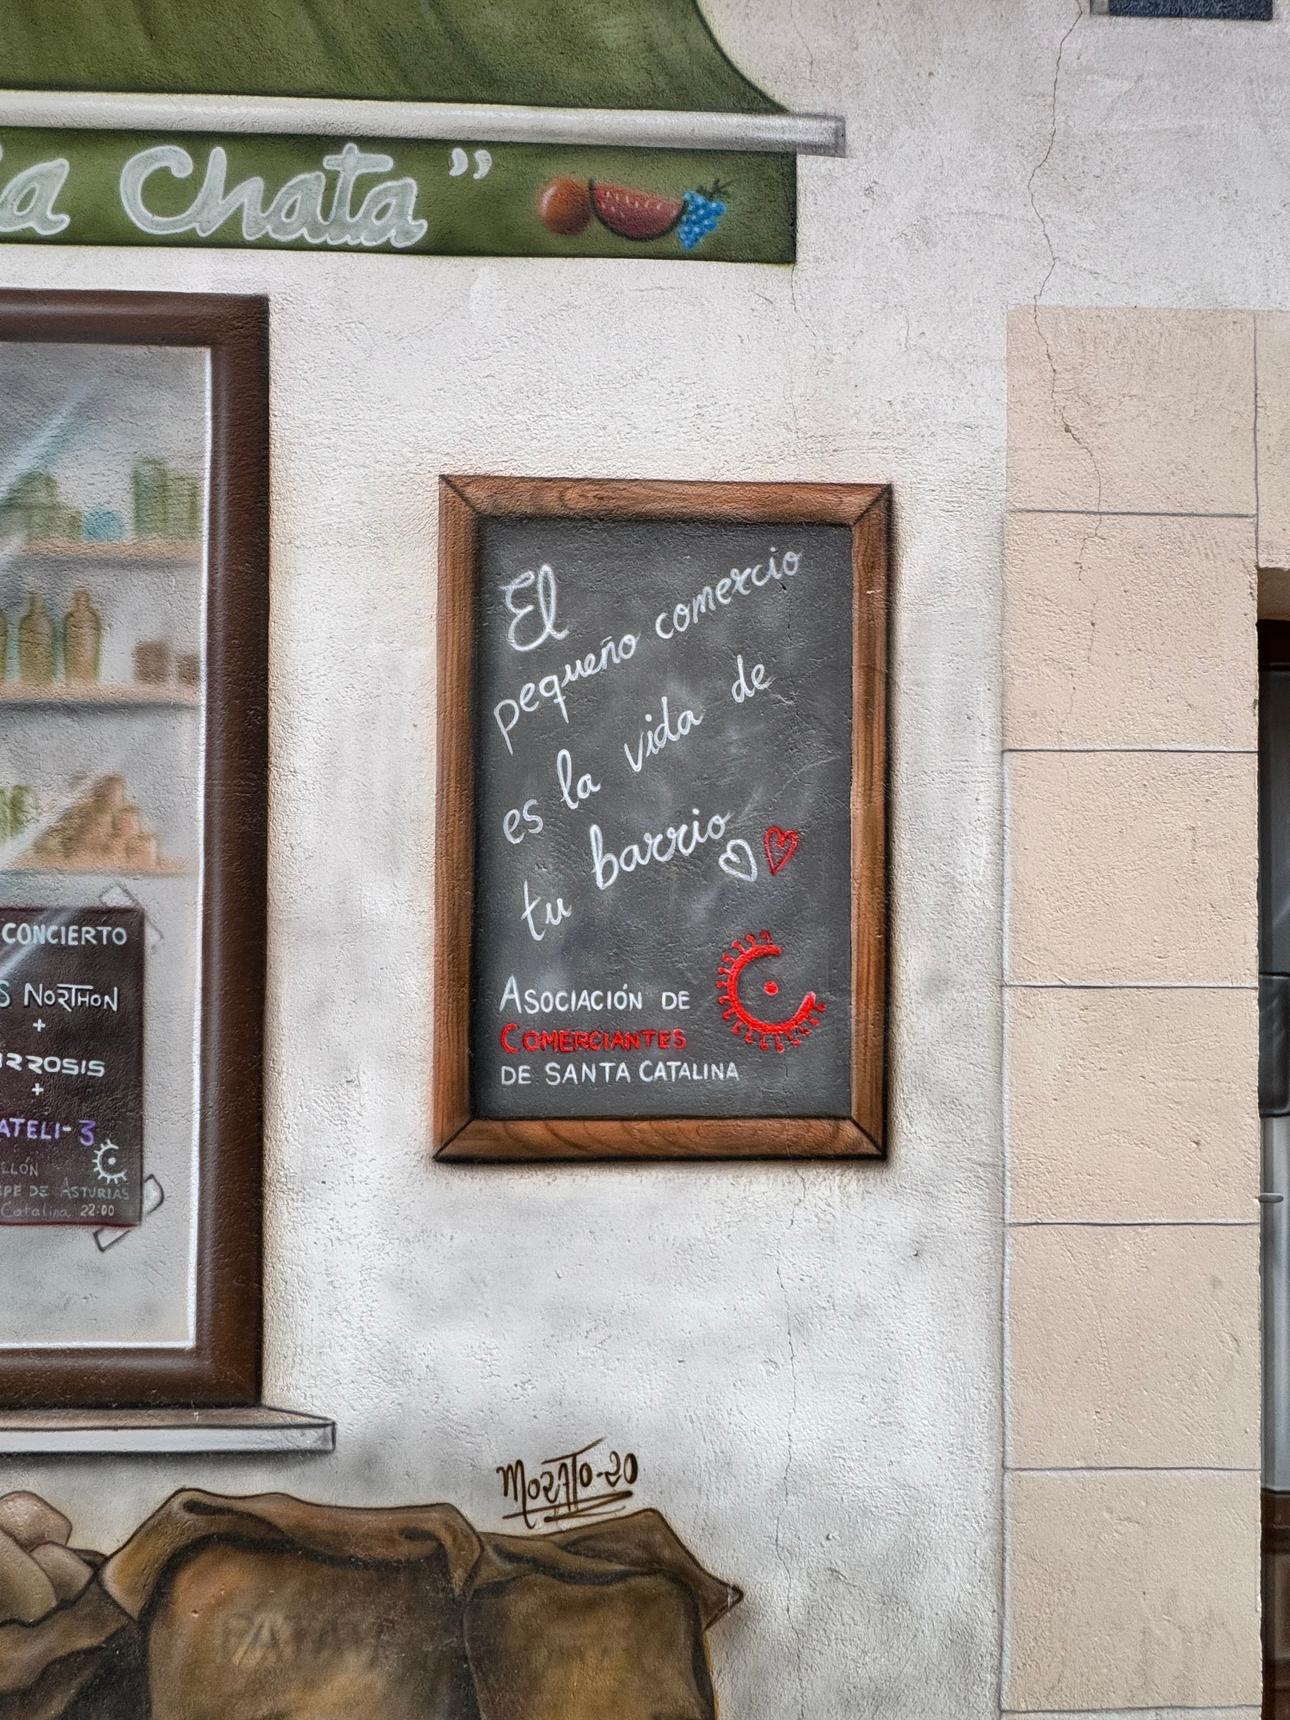 a Chata”
El
pequeño comercio
es la vida de
tu barrio
ASOCIACIÓN DE
COMERCIANTES
DE SANTA CATALINA
CONCIERTO
S NORTHON
+
IRROSIS
+
ATELI-3
LLÓN
IPE DE ASTURIAS
Catalina 22:00
MOZITO-20